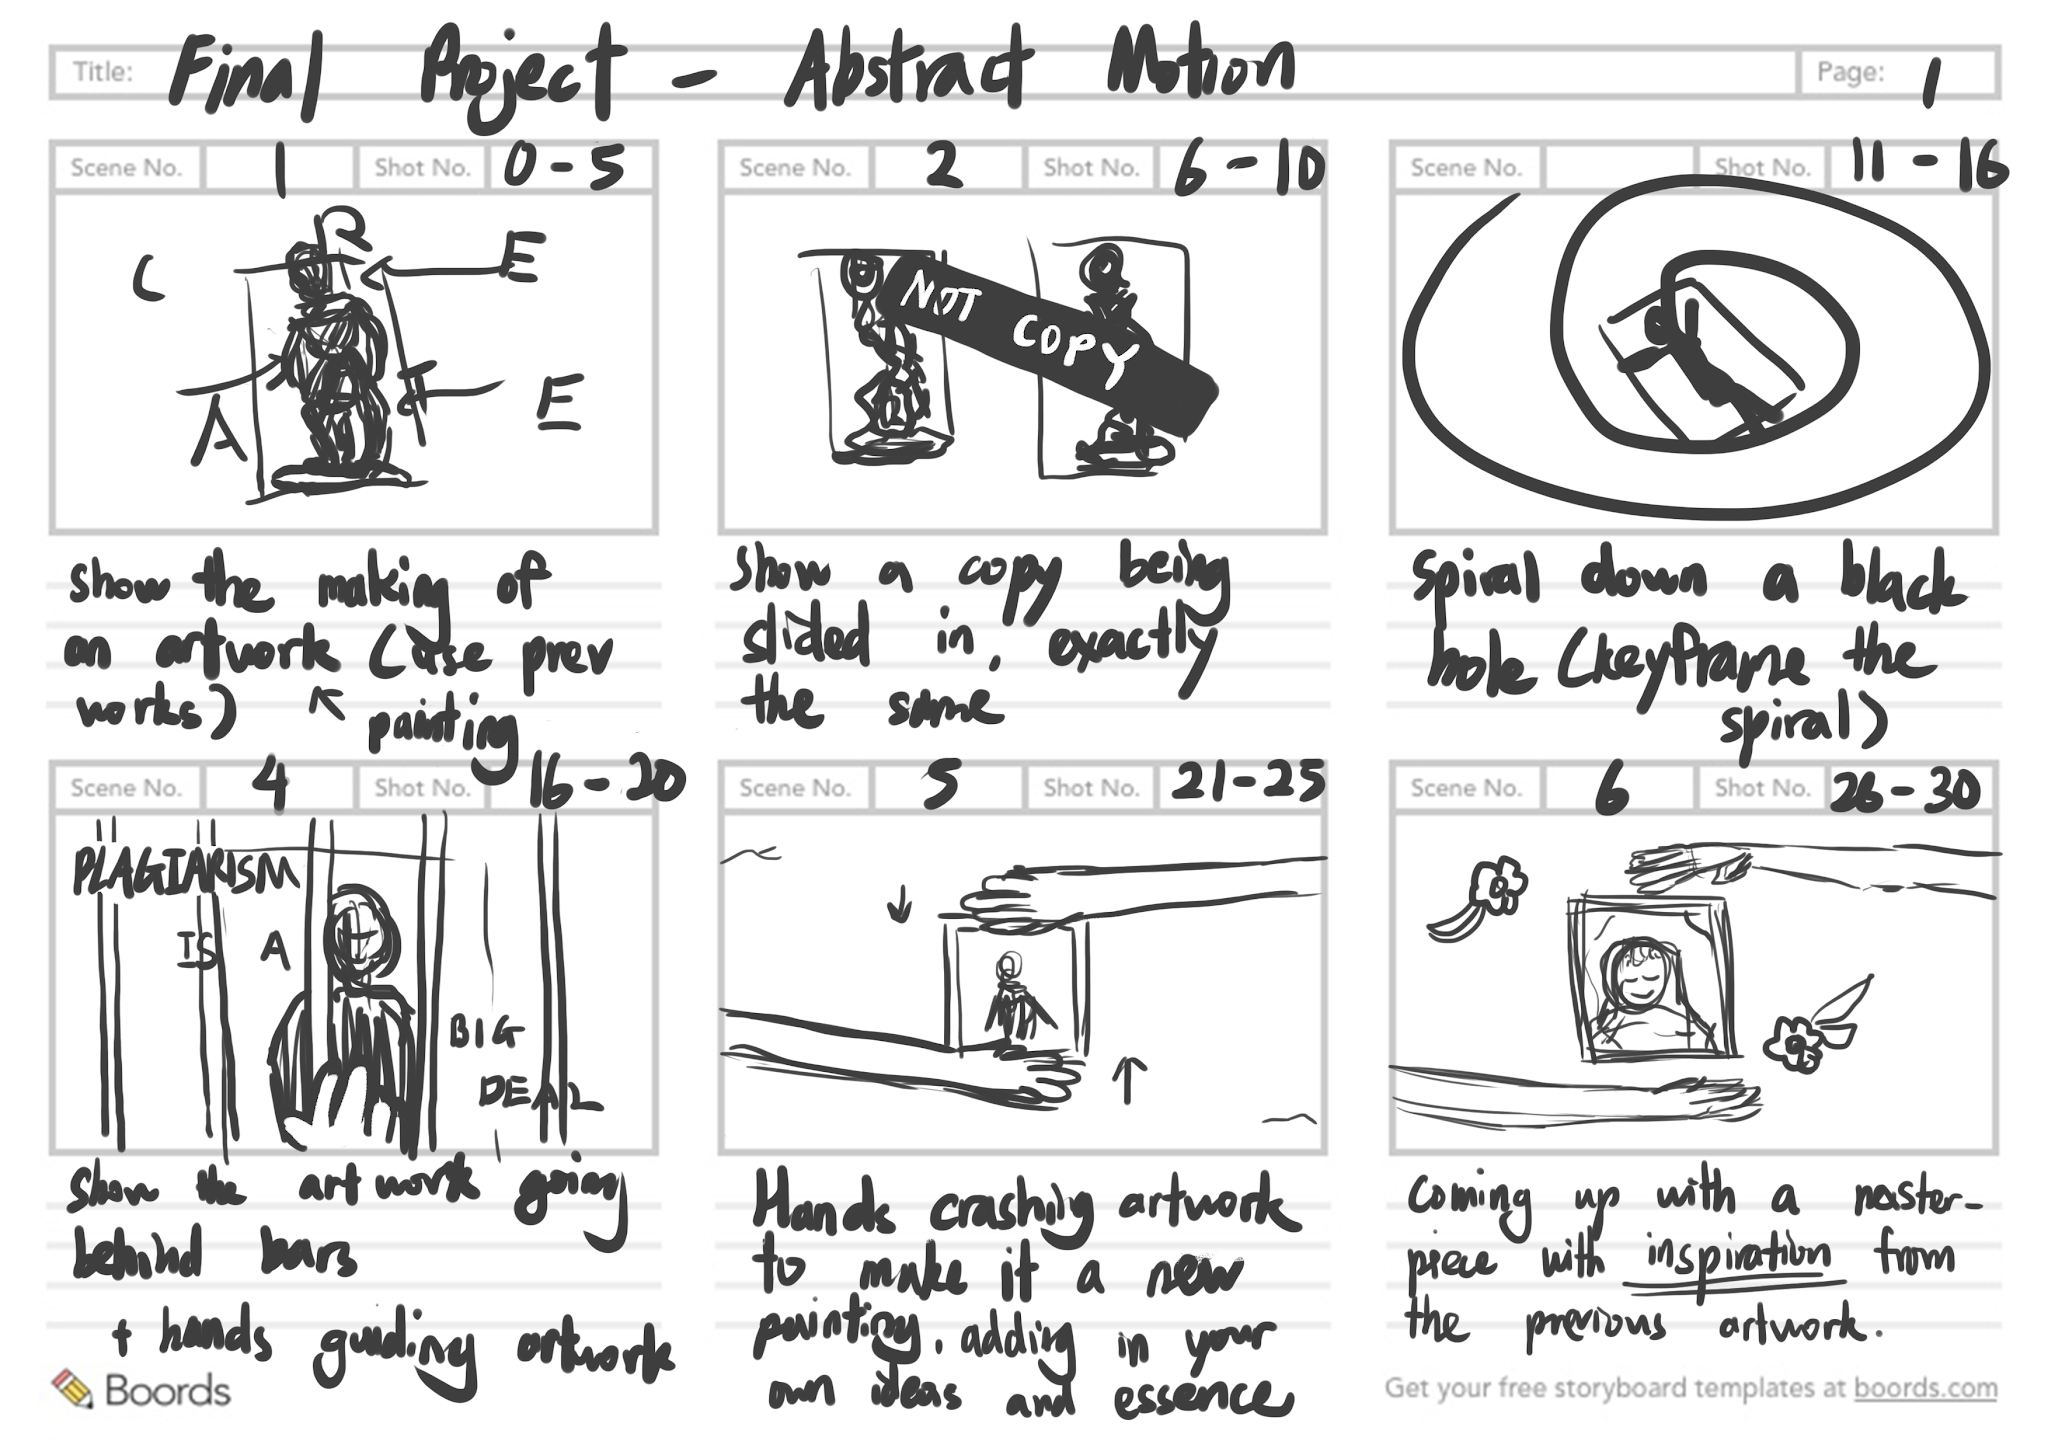 Title: Final Project - Abstract Motion
Page: 1
Scene No. 1 Shot No. 0-5
C R E
A T E
show the making of
an artwork (use prev
works) painting
Scene No. 2 Shot No. 6-10
NOT COPY
show a copy being
slided in, exactly
the same
Scene No. Shot No. 11-16
spiral down a black
hole (keyframe the
spiral)
Scene No. 4 Shot No. 16-20
PLAGIARISM
IS A
BIG
DEAL
show the artwork going
behind bars
+ hands guiding artwork
Scene No. 5 Shot No. 21-25
Hands crashing artwork
to make it a new
painting, adding in your
own ideas and essence
Scene No. 6 Shot No. 26-30
coming up with a master-
piece with inspiration from
the previous artwork.
Boords
Get your free storyboard templates at boords.com